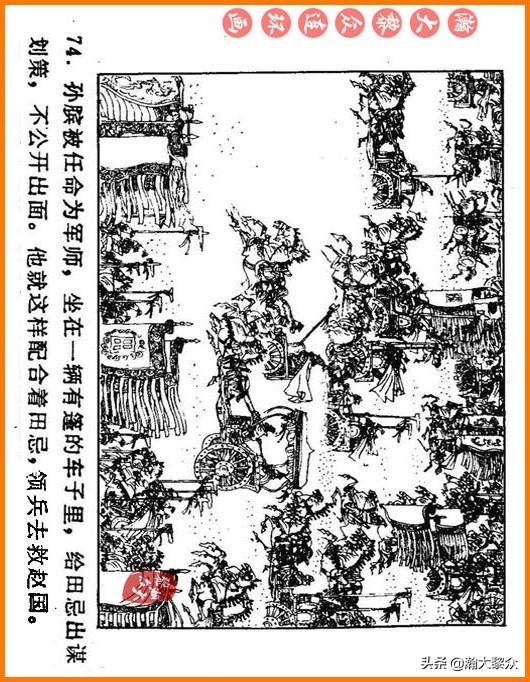 瀚大黎众连环画
74. 孙膑被任命为军师，坐在一辆有篷的车子里，给田忌出谋
划策，不公开出面。他就这样配合着田忌，领兵去救赵国。
头条 @瀚大黎众